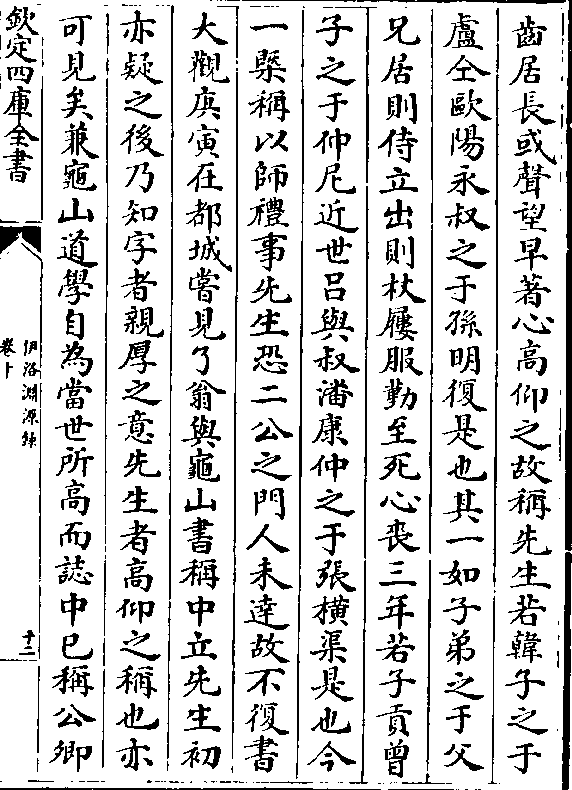 齒居長或聲望早著心高仰之故稱先生若韓子之于
盧仝歐陽永叔之于孫明復是也其一如子弟之于父
兄居則侍立出則杖屨服勤至死心喪三年若子貢曾
子之于仲尼近世呂與叔潘康仲之于張橫渠是也今
一槩稱以師禮事先生恐二公之門人未達故不復書
大觀庚寅在都城嘗見了翁與龜山書稱中立先生初
亦疑之後乃知字者親厚之意先生者高仰之稱也亦
可見矣兼龜山道學自為當世所高而誌中已稱公卿
欽定四庫全書
伊洛淵源錄
卷十
十二